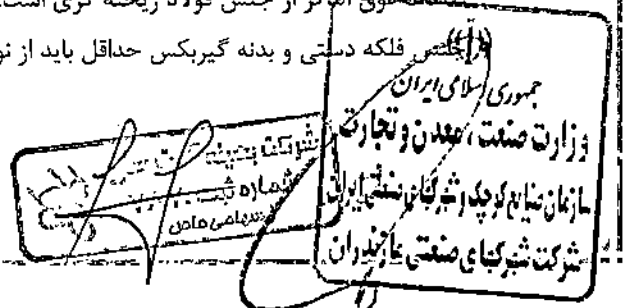 فوق الذکر از جنس فولاد ریخته گری است.
جنس فلکه دستی و بدنه گیربکس حداقل باید از نو
جمهوری اسلامی ایران
وزارت صنعت، معدن و تجارت
سازمان صنایع کوچک و شهرکهای صنعتی ایران
شرکت شهرکهای صنعتی مازندران
شرکت
شماره ثبت
سهامی خاص